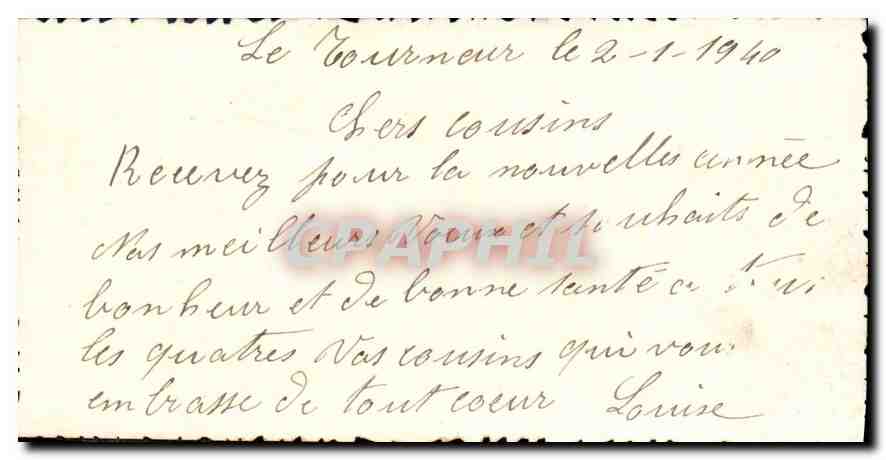 Le Tourneur le 2-1-1940
Chers cousins
Recevez pour la nouvelles année
Nos meilleurs Voeux et souhaits de
bonheur et de bonne santé a
les quatres Vos cousins qui vous
embrasse de tout coeur Louise
CPAPHIL